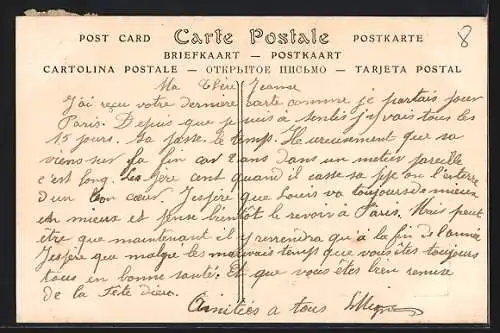 POST CARD Carte Postale POSTKARTE
BRIEFKAART — POSTKAART
CARTOLINA POSTALE — ОТКРЫТОЕ ПИСЬМО — TARJETA POSTAL
8
Ma Chère Jeanne
J'ai reçu votre dernière carte comme je partais pour
Paris. Depuis que je suis à Senlis j'y vais tous les
15 jours. Ça passe le temps. Heureusement que sa
viens sur la fin car 2 ans dans un metier pareille
c'est long. Le père cent quand il casse sa pipe on l'enterre
d'un bon cœur. J'espère que Louis va toujours de mieux
en mieux et pense bientôt le revoir à Paris. Mais peut
être que maintenant il y reviendra qu'à la fin de l'année
J'espère que malgré les mauvais temps que vous êtes toujours
tous en bonne santé. Et que vous êtes bien remise
de la Fête dieu.
Amitiés a tous